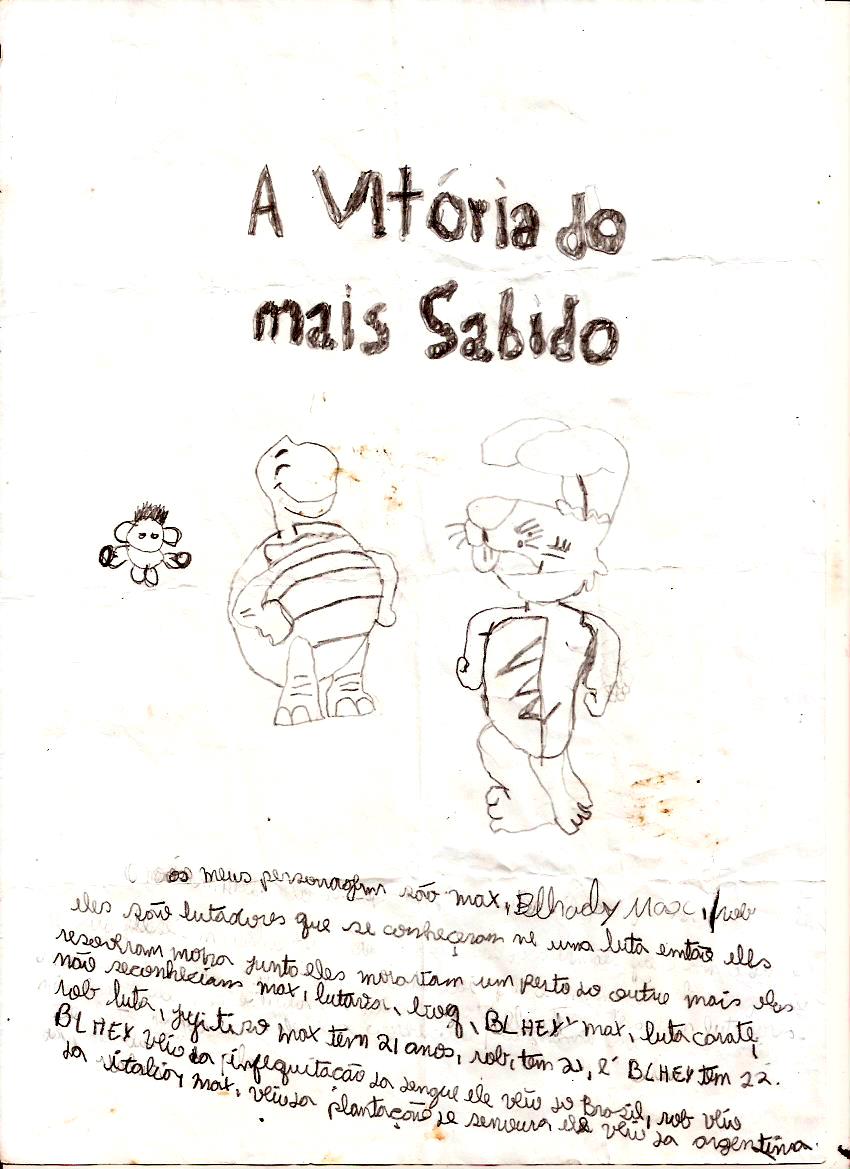 A Vitória do
mais Sabido
os meus personagens são max, Blhady Max, rob
eles são lutadores que se conheçeram ne uma luta emtão elles
resovram mora junto eles moravam um perto do outro mais eles
não seconheciam max, lutava, boq, BLHEYY max, luta carate,
rob luta, jujitiso max tem 21 anos, rob, tem 21, é BLHEY tem 22.
BLHEY véio da infequitação da dengue ele véio do Brasil, rob véio
da vitalia, max, véio da plantação de senoura ele véio da argentina.